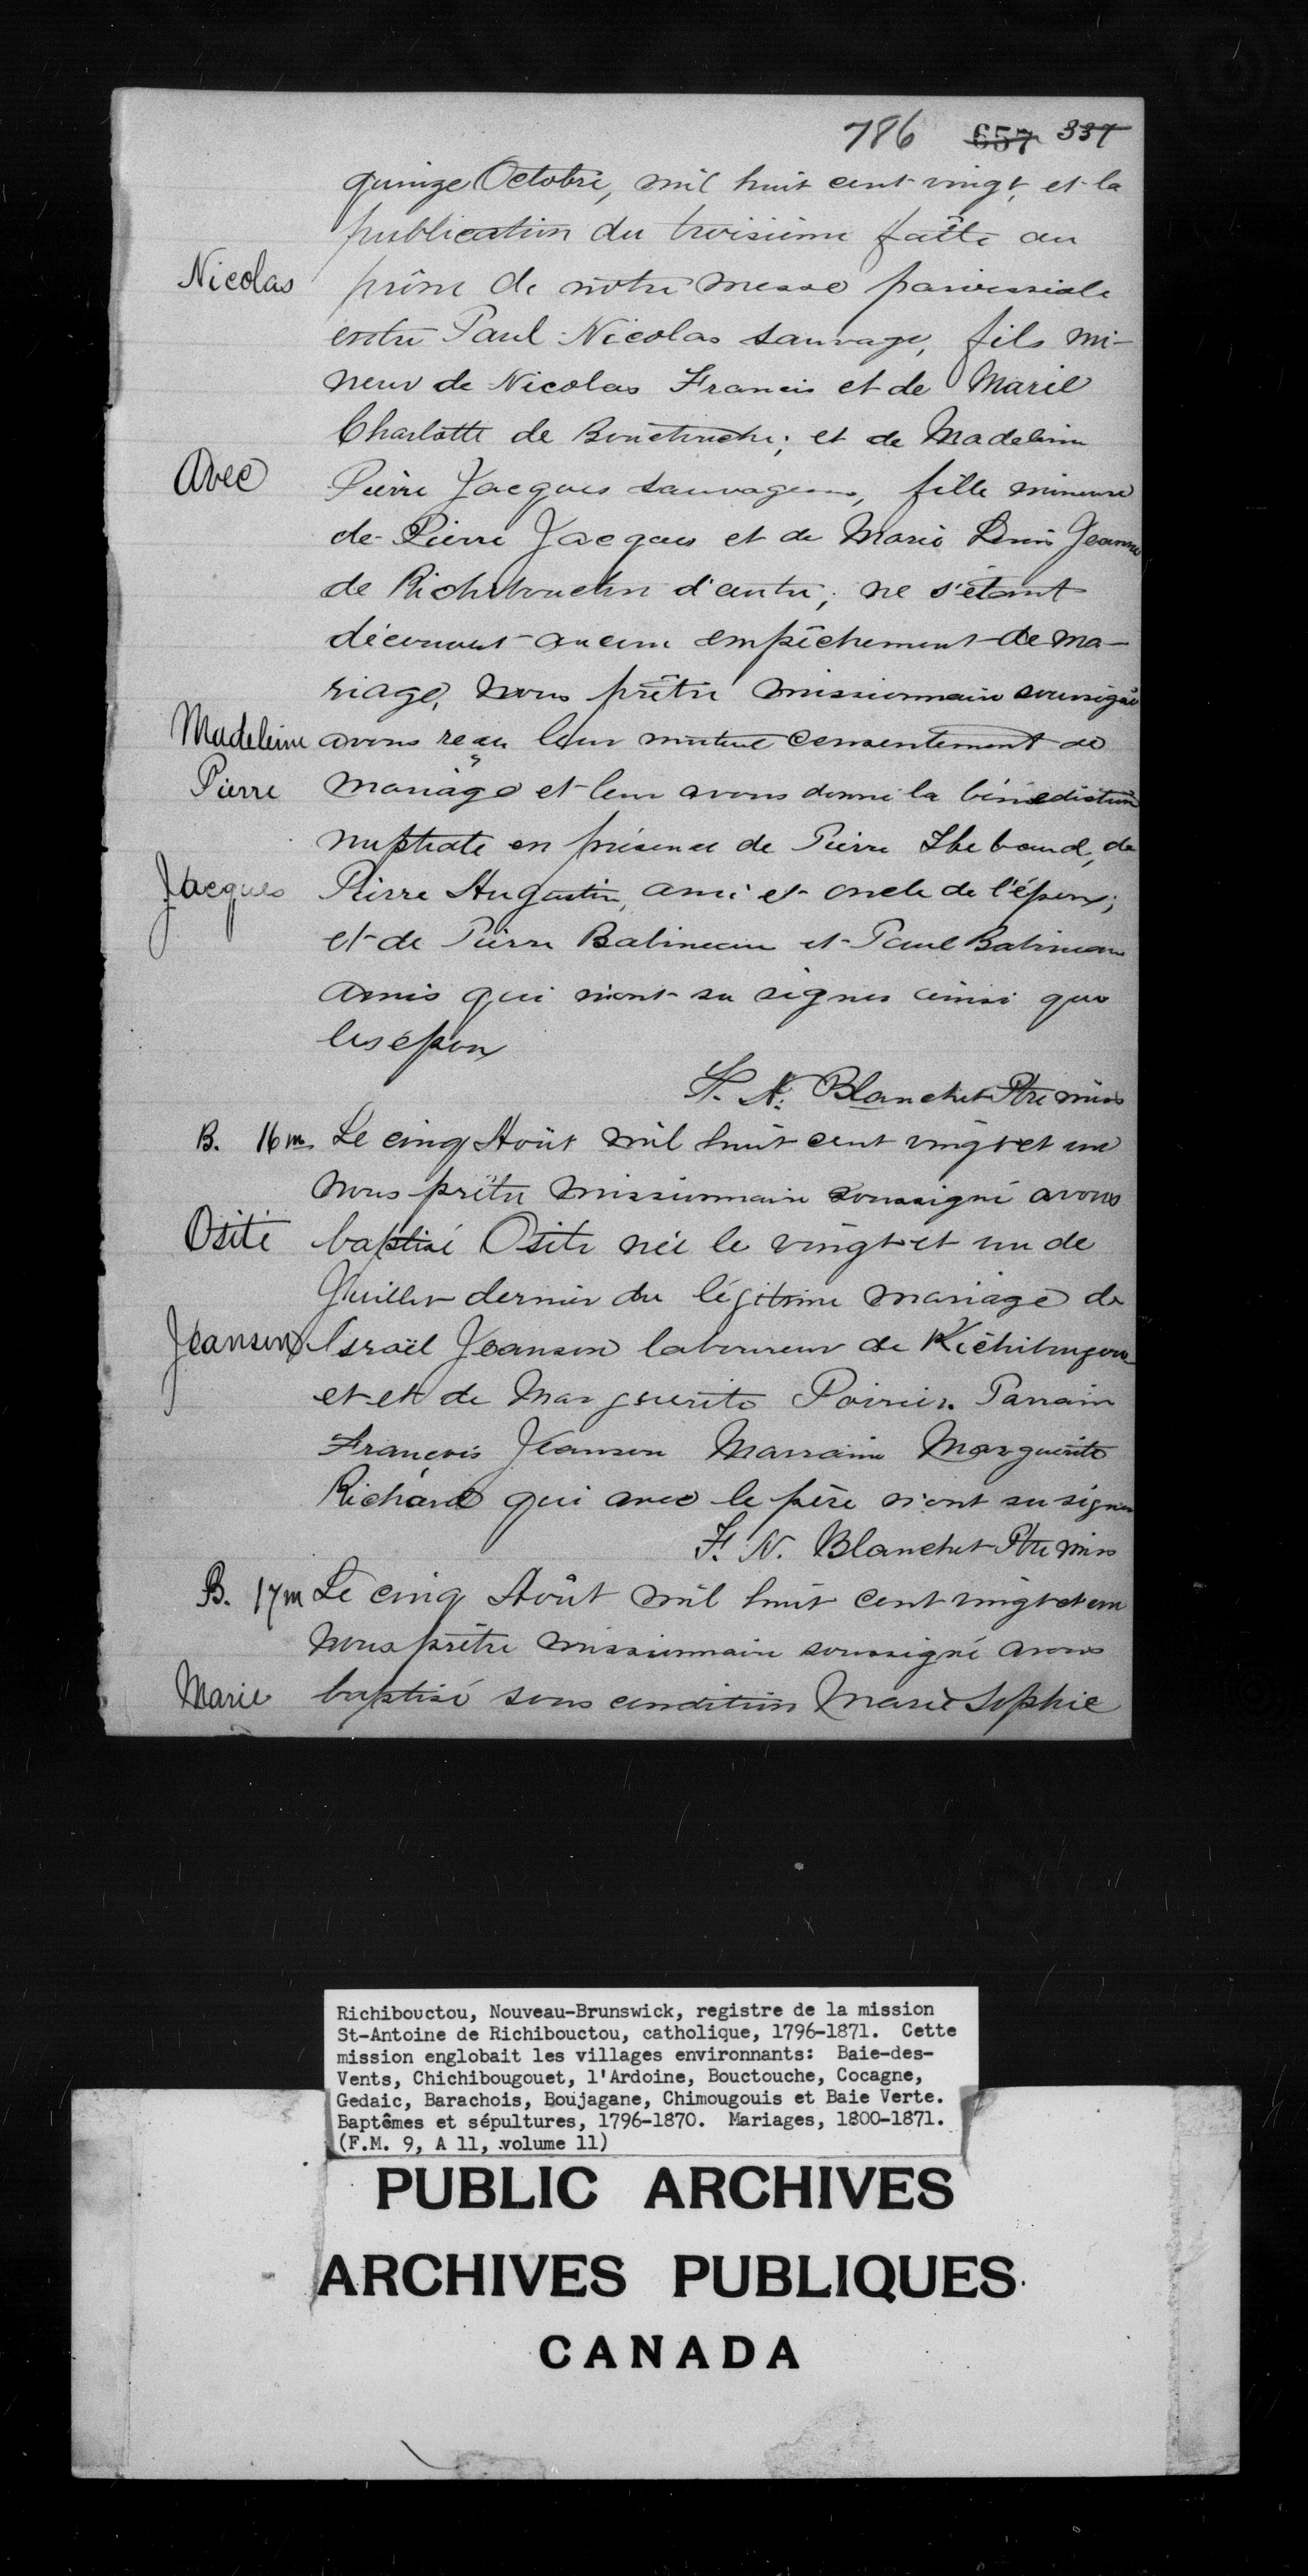 786 657 337
quinze Octobre, mil huit cent vingt, et la
publication du troisième faîte au
Nicolas prône de nôtre messe paroissiale
entre Paul Nicolas sauvage, fils mi-
neur de Nicolas Francis et de Marie
Charlotte de Bouctouche; et de Madeleine
Avec Pierre Jacques sauvagesse, fille mineure
de Pierre Jacques et de Marie Denis Jeanne
de Richibouctou d'autre; ne s'étant
découvert aucun empêchement de ma-
riage, nous prêtre missionnaire soussigné
Madeleine avons reçu leur mutuel consentement de
Pierre mariage et leur avons donné la bénédiction
nuptiale en présence de Pierre Thebaud, de
Jacques Pierre Augustin, ami et oncle de l'époux;
et de Pierre Babineau et Paul Babineau
amis qui n'ont su signer ainsi que
les époux
F. N. Blanchet Ptre miss
B. 16m Le cinq Août mil huit cent vingt et un
nous prêtre missionnaire soussigné avons
Osite baptisé Osite née le vingt et un de
Juillet dernier du légitime mariage de
Jeanson Israël Jeanson laboureur de Richibugou
et et de Marguerite Poirier. Parrain
François Jeanson Marraine Marguerite
Richard qui avec le père n'ont su signer
F. N. Blanchet Ptre miss
B. 17m Le cinq Août mil huit cent vingt et un
nous prêtre missionnaire soussigné avons
Marie baptisé sous condition Marie Sophie
Richibouctou, Nouveau-Brunswick, registre de la mission
St-Antoine de Richibouctou, catholique, 1796-1871. Cette
mission englobait les villages environnants: Baie-des-
Vents, Chichibougouet, l'Ardoine, Bouctouche, Cocagne,
Gedaic, Barachois, Boujagane, Chimougouis et Baie Verte.
Baptêmes et sépultures, 1796-1870. Mariages, 1800-1871.
(F.M. 9, A 11, volume 11)
PUBLIC ARCHIVES
ARCHIVES PUBLIQUES
CANADA